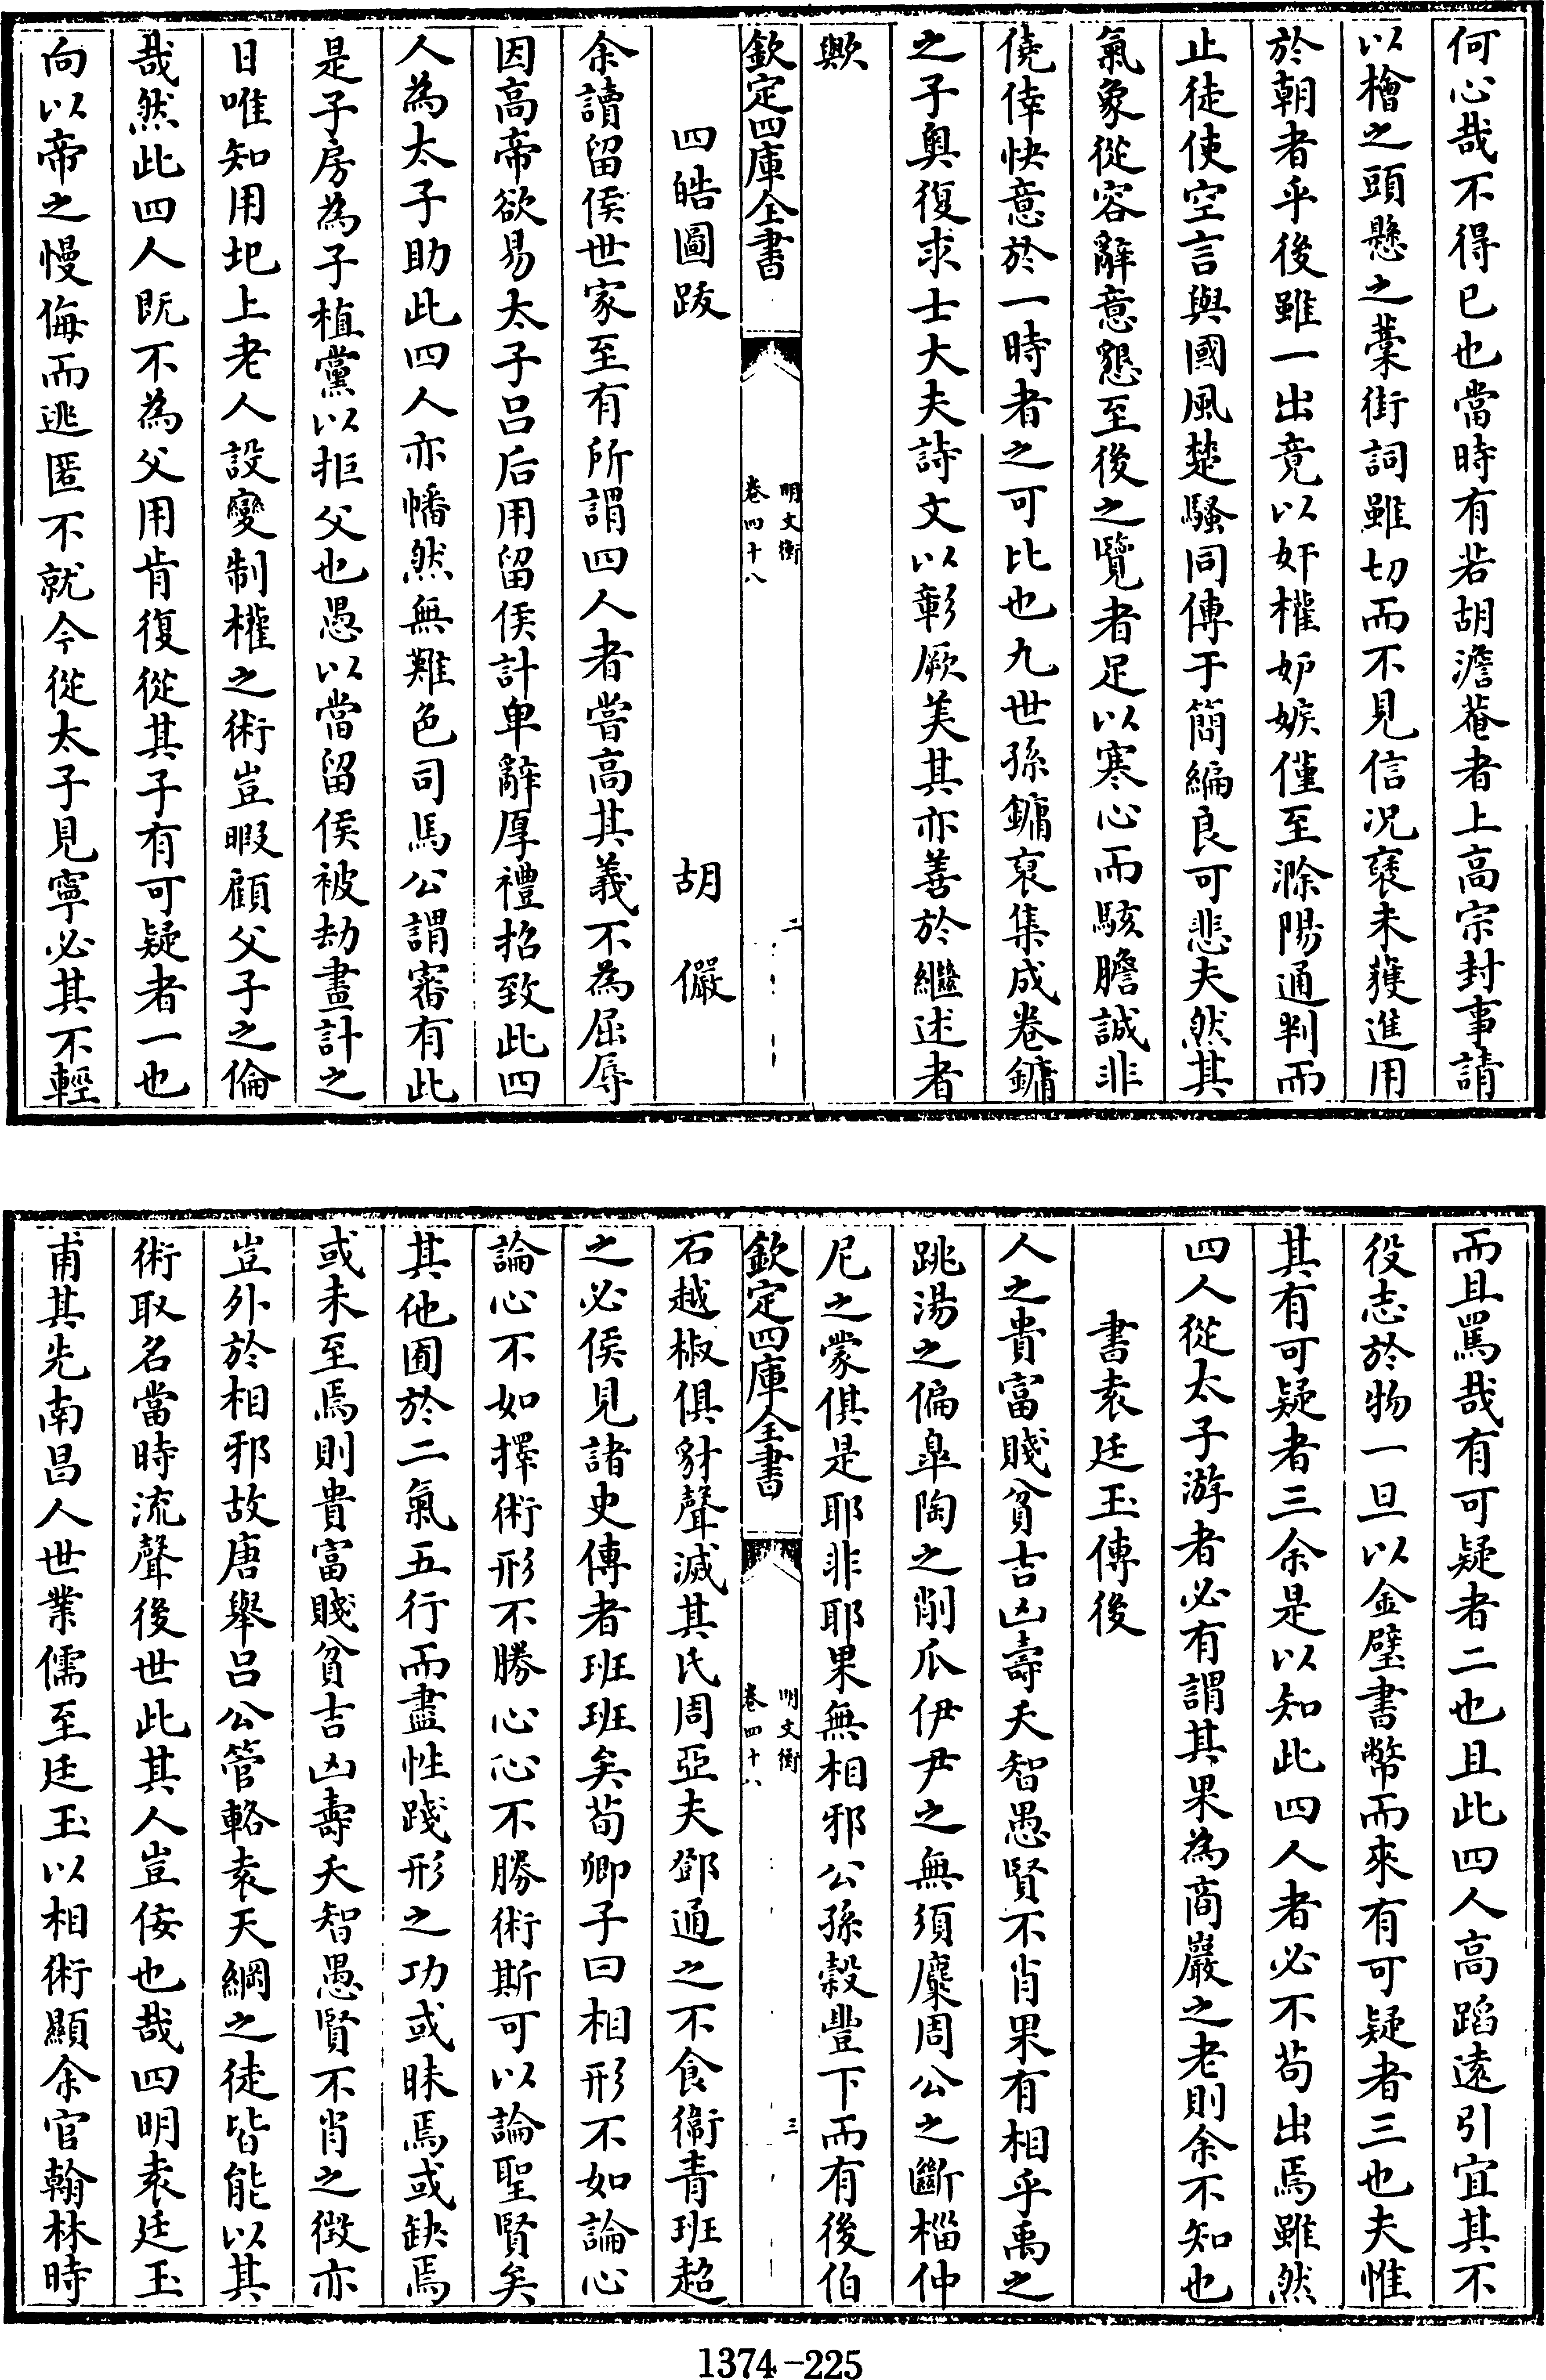 何心哉不得已也當時有若胡澹菴者上高宗封事請
以檜之頭懸之藁街詞雖切而不見信况褒未獲進用
於朝者乎後雖一出竟以奸權妒嫉僅至滁陽通判而
止徒使空言與國風楚騷同傳于簡編良可悲夫然其
氣象從容辭意懇至後之覽者足以寒心而駭膽誠非
僥倖快意於一時者之可比也九世孫鏞裒集成卷鏞
之子奥復求士大夫詩文以彰厥美其亦善於繼述者
歟
欽定四庫全書
明文衡
卷四十八
二
四皓圖跋
胡儼
余讀留侯世家至有所謂四人者嘗高其義不為屈辱
因高帝欲易太子呂后用留侯計卑辭厚禮招致此四
人為太子助此四人亦幡然無難色司馬公謂審有此
是子房為子植黨以拒父也愚以當留侯被劫畫計之
日唯知用圯上老人設變制權之術豈暇顧父子之倫
哉然此四人既不為父用肯復從其子有可疑者一也
向以帝之慢侮而逃匿不就今從太子見寧必其不輕
而且罵哉有可疑者二也且此四人高蹈遠引宜其不
役志於物一旦以金璧書幣而來有可疑者三也夫惟
其有可疑者三余是以知此四人者必不苟出焉雖然
四人從太子游者必有謂其果為商巖之老則余不知也
書袁廷玉傳後
人之貴富賤貧吉凶壽夭智愚賢不肖果有相乎禹之
跳湯之偏臯陶之削瓜伊尹之無須麋周公之斷椔仲
尼之蒙倛是耶非耶果無相邪公孫穀豐下而有後伯
欽定四庫全書
明文衡
卷四十八
三
石越椒俱豺聲滅其氏周亞夫鄧通之不食衞青班超
之必侯見諸史傳者班班矣荀卿子曰相形不如論心
論心不如擇術形不勝心心不勝術斯可以論聖賢矣
其他囿於二氣五行而盡性踐形之功或昧焉或缺焉
或未至焉則貴富賤貧吉凶壽夭智愚賢不肖之徴亦
豈外於相邪故唐舉呂公管輅袁天綱之徒皆能以其
術取名當時流聲後世此其人豈佞也哉四明袁廷玉
甫其先南昌人世業儒至廷玉以相術顯余官翰林時
1374-225